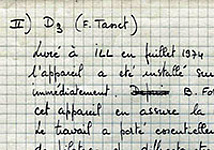 II) D3 (F. Tasset)
Livré à ILL en juillet 1974
l'appareil a été installé sur
immédiatement. Depuis B. Fo
cet appareil en assure la
Le travail a porté essentielle